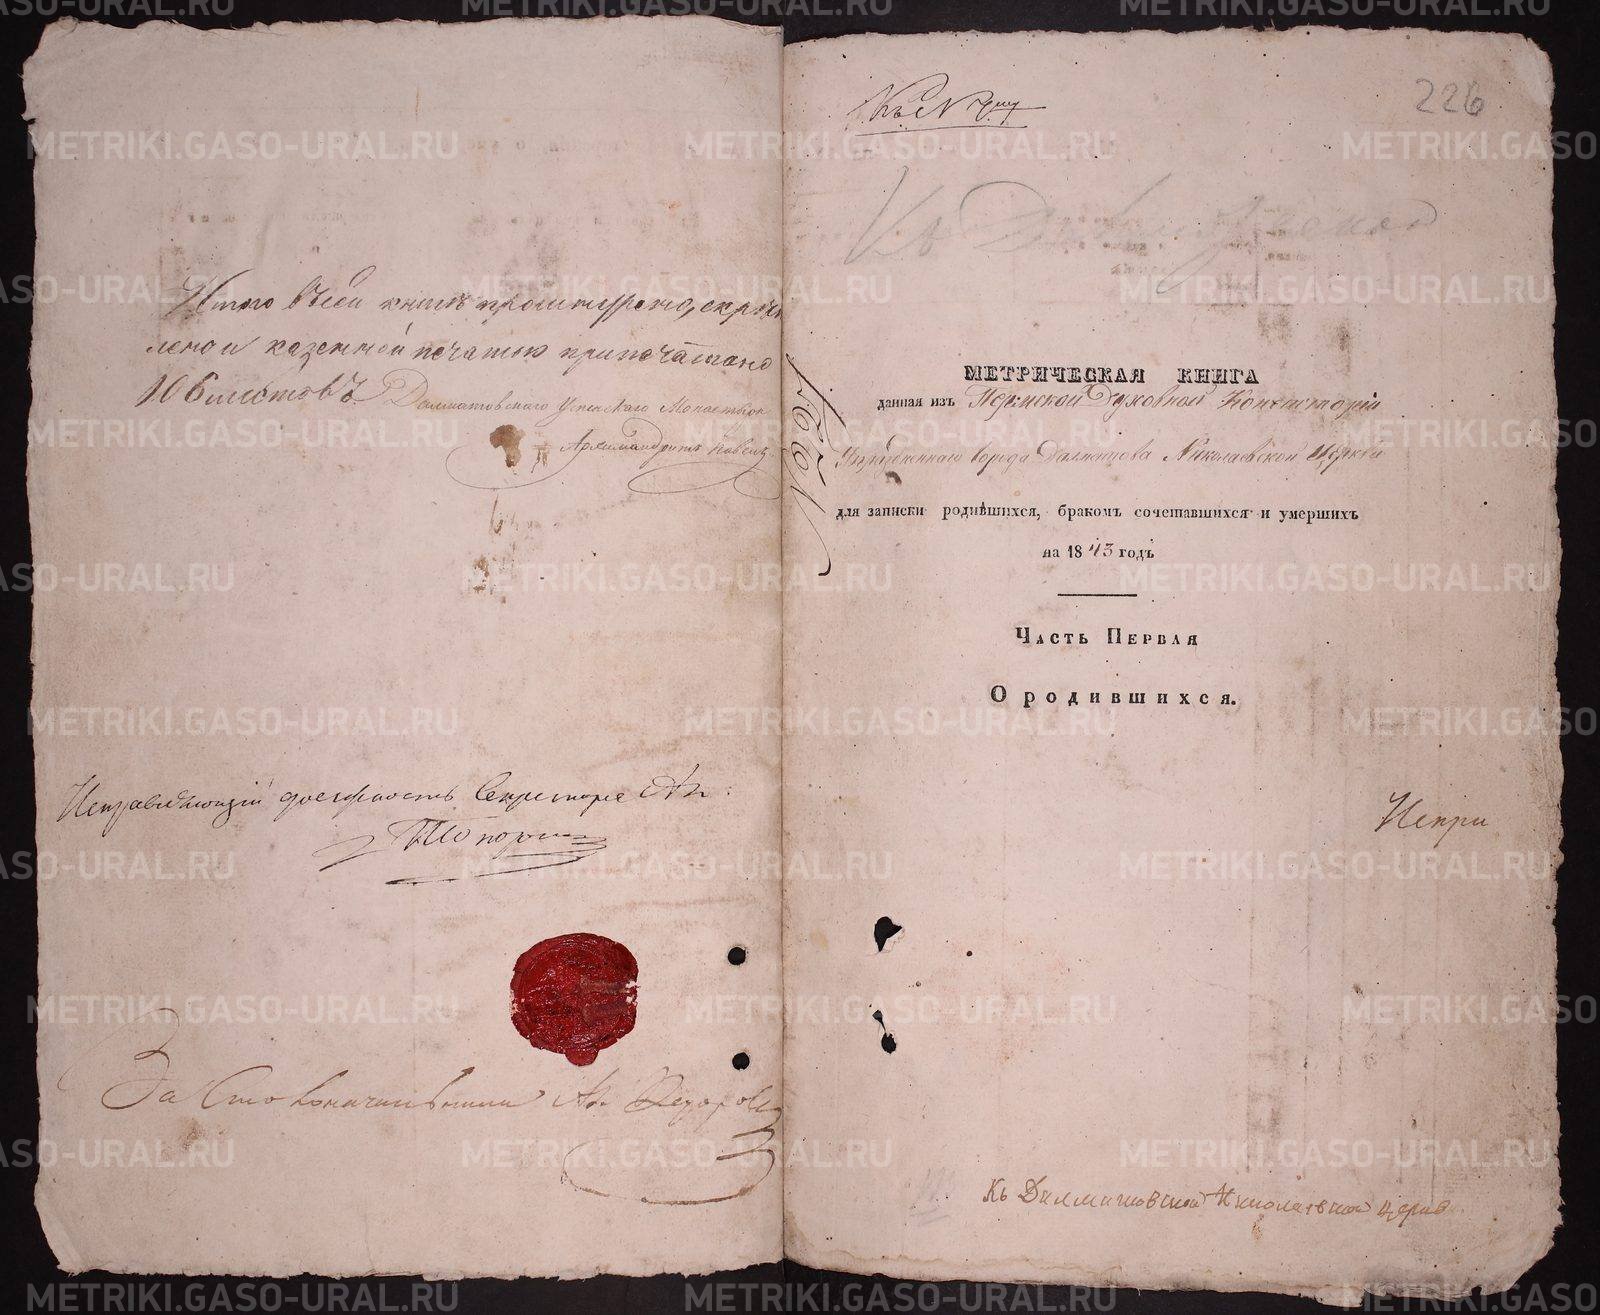 Итого въ сей книгѣ прошнуровано, скрѣп
лено и казенной печатью припечатано
106 листовъ. Далматовскаго Успенскаго Монастыря
Архимандритъ
Исправляющій должность Секретаря
За Столоначальника Ал. Федоровъ
226
Къ
МЕТРИЧЕСКАЯ КНИГА
данная изъ Пермской Духовной Консисторіи
города Далматова Николаевской Церкви
для записки родившихся, бракомъ сочетавшихся и умершихъ
на 1843 годъ
ЧАСТЬ ПЕРВАЯ
О родившихся.
Испра
Къ Далматовской Николаевской церкв
METRIKI.GASO-URAL.RU